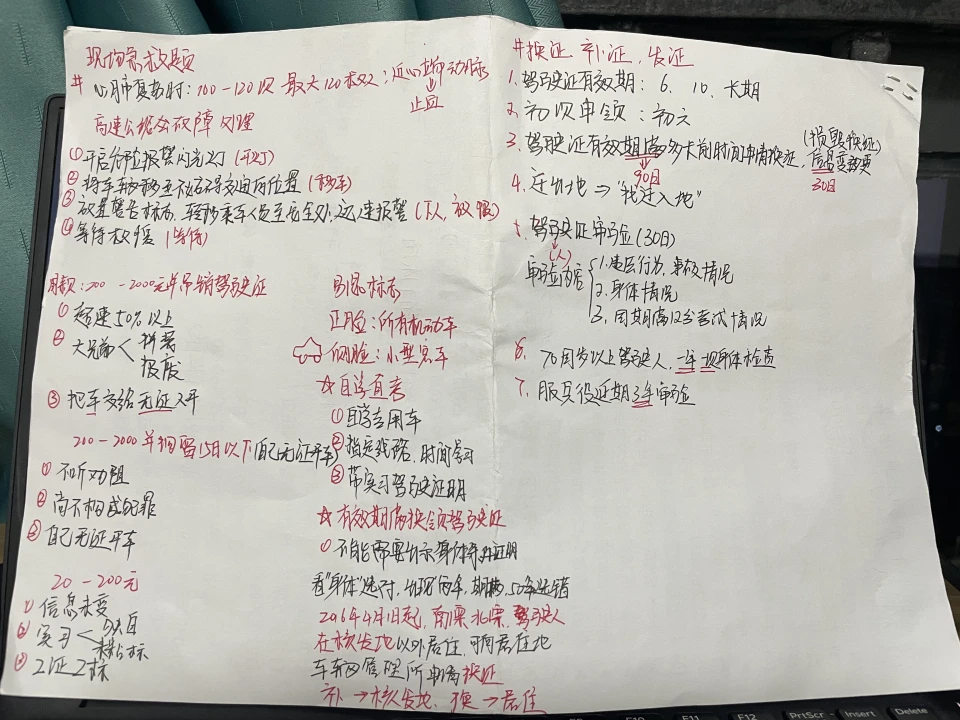 现场急救题
# 心肺复苏时：100-120次 最大120次；近心端动脉
↓
止血
高速公路公故障处理
①开启危险报警闪光灯（开灯）
②将车辆移至不妨碍交通的位置（移车）
③放置警告标志，转移乘车人员至安全处，迅速报警（下人，放报）
④等待救援（等待）
罚款：200-2000元并吊销驾驶证
①超速50%以上
②大兄弟<拼装
报废
③把车交给无证人开
200-2000并拘留15日以下（自己无证开车）
①不听劝阻
②尚不构成犯罪
③自己无证开车
20-200元
①信息未变
②实习<
未粘标
③2证2标
标志
正脸：所有机动车
侧脸：小型客车
☆自学直考
①自学专用车
②指定线路、时间学习
③带实习驾驶证明
☆有效期满换领驾驶证
①不能需要出示身体条件证明
看"身体"选对，出现两年，期满，50年选错
2016年4月1日起，驾驶人
在核发地以外居住，可向居住地
车车辆管理所申请换证
补→核发地、换→居住
#换证、补证、发证
1.驾驶证有效期：6、10、长期
2.初次申领：初六
3.驾驶证有效期满多久前时间申请换证，（损毁换证）信息变更
↓
90日
30日
4.迁出地⇒"我迁入地"
5.驾驶证审验（30日）
（人）
审验内容{1.违法行为，事故情况
2.身体情况
3.周期满12分考试情况
6.70周岁以上驾驶人，一年一次身体检查
7.服兵役延期3年审验
PrtScr
Insert
Delete
F10
F11
F12